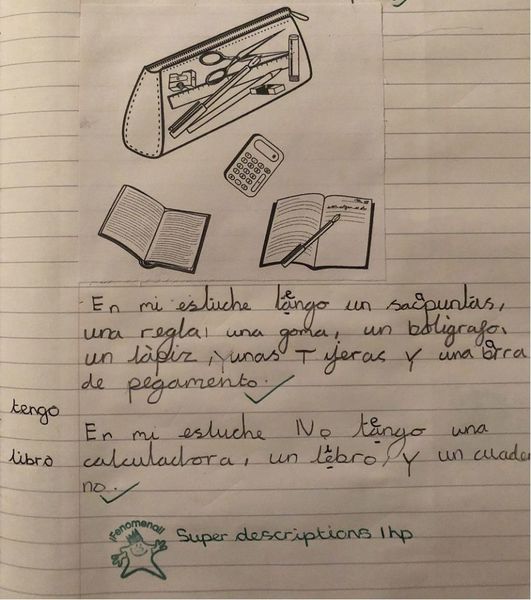 En mi estuche tengo un sacapuntas,
una regla, una goma, un boligrafo,
un lápiz, y unas Tijeras y una barra
de pegamento.
tengo
En mi estuche No tengo una
libro
calculadora, un libro, y un cuader
no.
¡Fenomenal!
Super descriptions 1hp